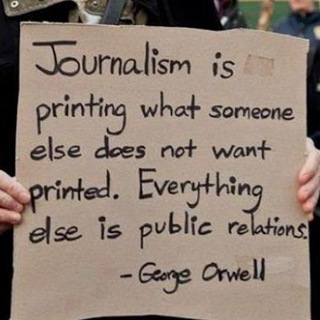 Journalism is
printing what someone
else does not want
printed. Everything
else is public relations.
- George Orwell